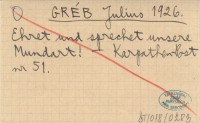 GRÉB Julius 1926.
Ehret und sprechet unsere
Mundart! — Karpathenpost
nr 51.
81/018/0283